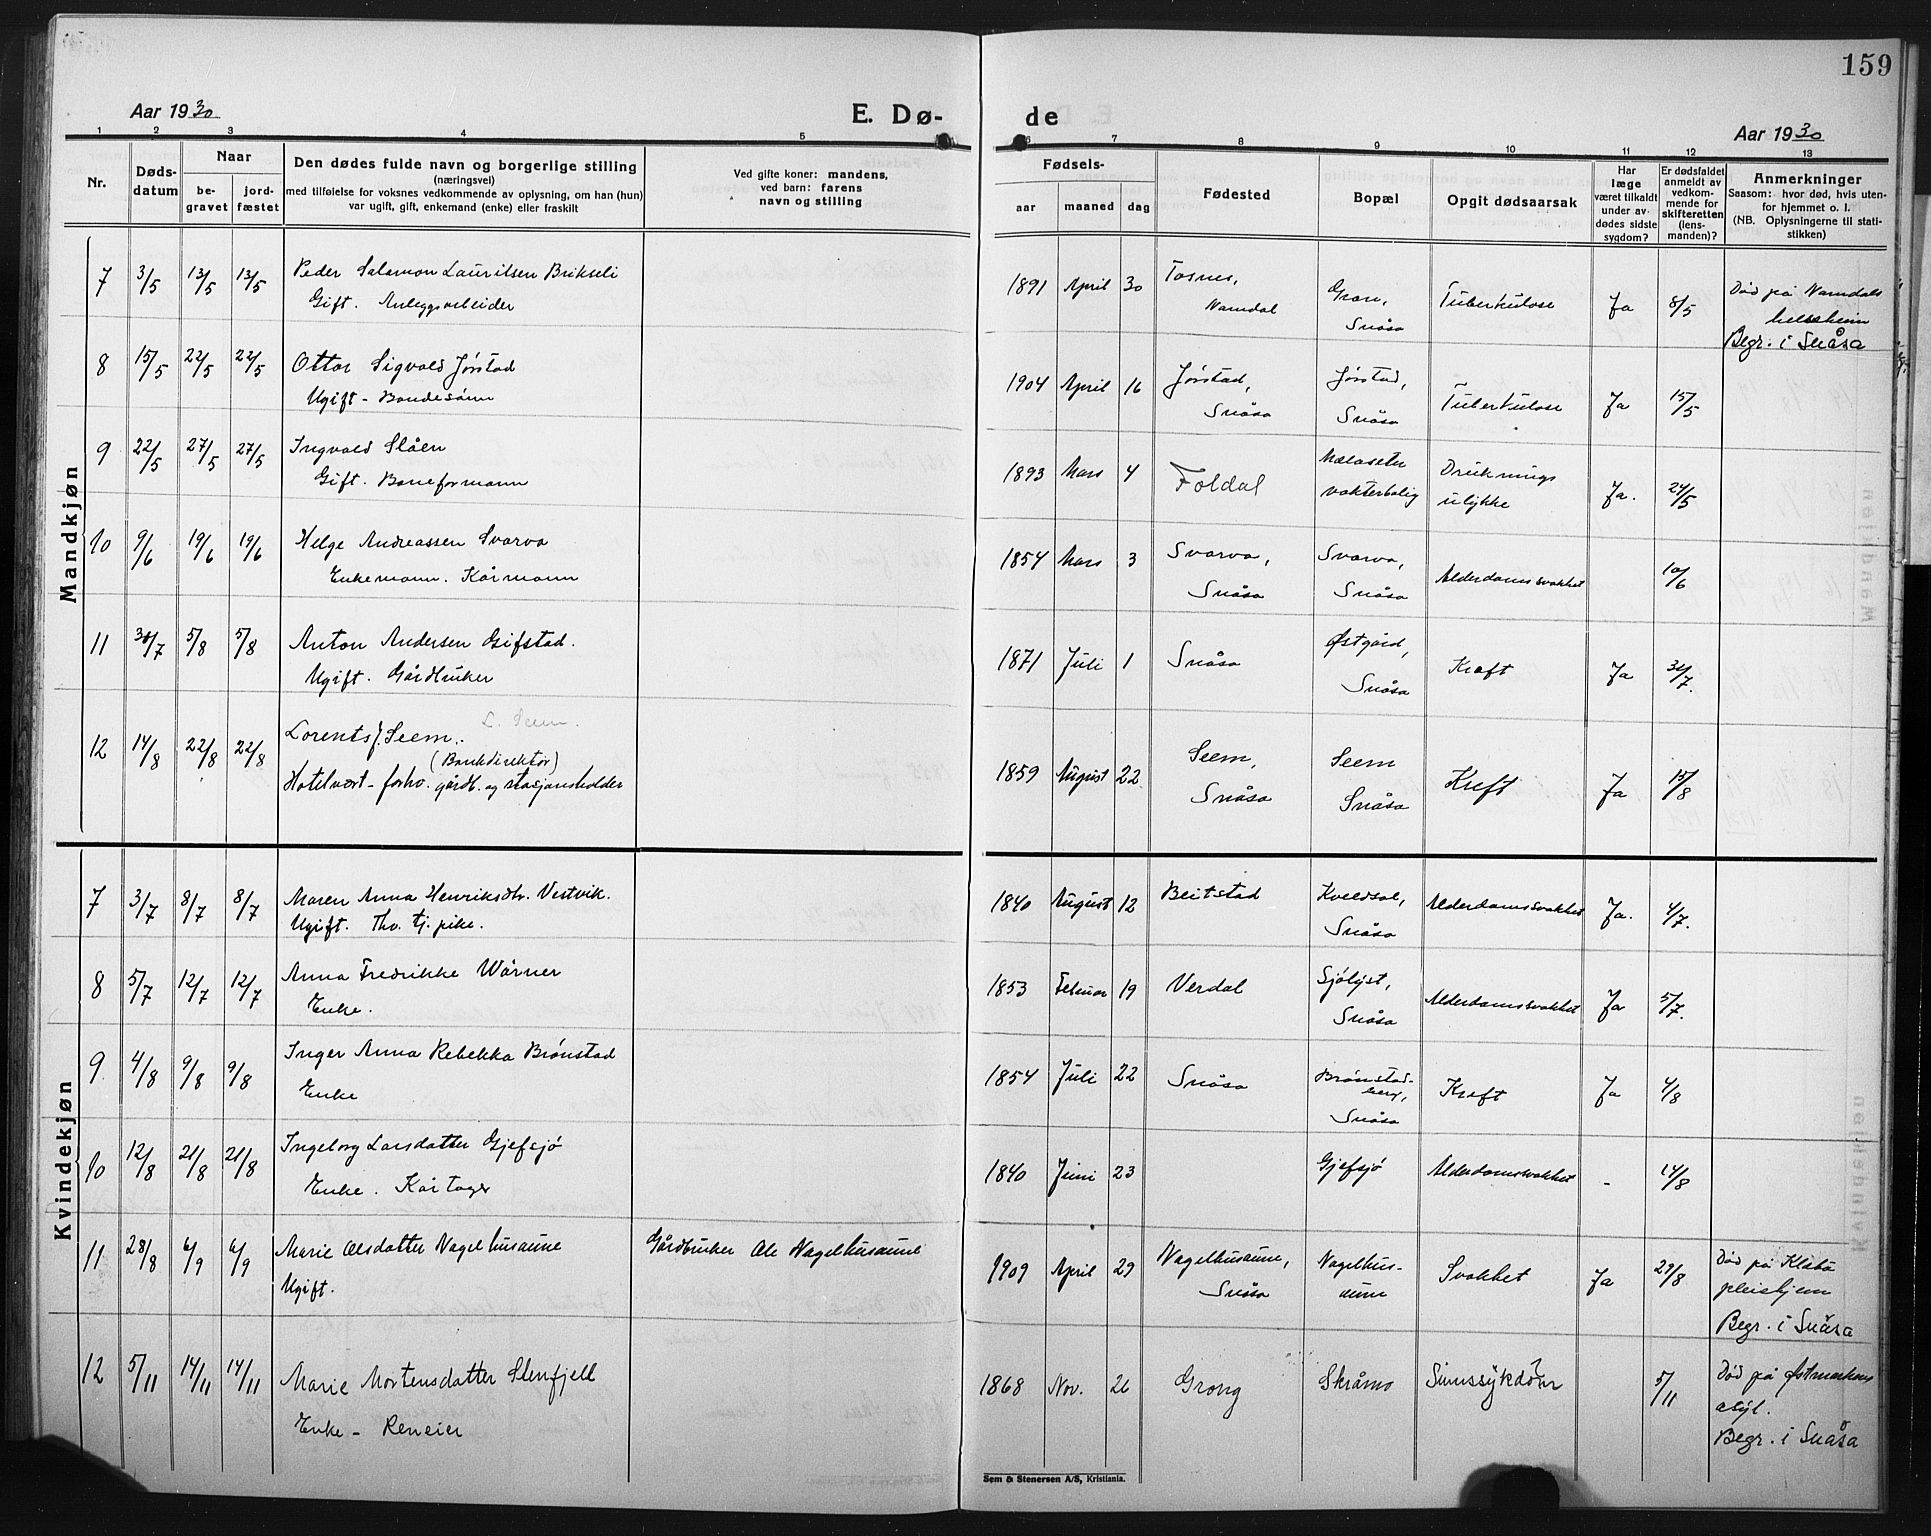 159
Aar 1930
E. Dø-
de
Aar 1930
1 2 3 4 5 6 7 8 9 10 11 12 13
Nr.
Døds-
datum
Naar
be-
gravet
jord-
fæstet
Den dødes fulde navn og borgerlige stilling
(næringsvei)
med tilføielse for voksnes vedkommende av oplysning, om han (hun)
var ugift, gift, enkemand (enke) eller fraskilt
Ved gifte koner: mandens,
ved barn: farens
navn og stilling
Fødsels-
aar maaned dag
Fødested
Bopæl
Opgit dødsaarsak
Har
læge
været tilkaldt
under av-
dødes sidste
sygdom?
Er dødsfaldet
anmeldt av
vedkom-
mende for
skifteretten
(lens-
manden)?
Anmerkninger
Saasom: hvor død, hvis uten-
for hjemmet o. l.
(NB. Oplysningerne til stati-
stikken)
Mandkjøn
7 3/5 13/5 13/5 Peder Salamon Lauritsen Brikseli
Gift. Anleggsarbeider
1891 April 30 Fosnes,
Namdal
Gran,
Snåsa
Tuberkulose Ja 8/5
Død på Namdals
helseheim
Begr. i Snåsa
8 15/5 22/5 22/5 Ottar Sigvald Jørstad
Ugift - Bondesønn
1904 April 16 Jørstad,
Snåsa
Jørstad,
Snåsa
Tuberkulose Ja 15/5
9 22/5 27/5 27/5 Ingvald Slåen
Gift. Baneformann
1893 Mars 4 Foldal
vokterbolig
Druknings
ulykke
Ja. 24/5
10 9/6 19/6 19/6 Helge Andreassen Svarva
Enkemann. Kårmann
1854 Mars 3 Svarva,
Snåsa
Svarva,
Snåsa
Alderdomssvakhet 10/6
11 30/7 5/8 5/8 Anton Andersen Gifstad.
Ugift. Gårdbruker
1871 Juli 1 Snåsa
Østgård,
Snåsa
Kreft Ja 31/7.
12 14/8 22/8 22/8 Lorents J. Seem.
L. Seem.
(Bankdirektør)
Hotelvært - forhv. gårdb. og stasjonsholder
1859 August 22 Seem,
Snåsa
Seem
Snåsa
Kreft Ja 15/8
Kvindekjøn
7 3/7 8/7 8/7 Maren Anna Henriksdtr. Vestvik.
Ugift. Fhv. tj. pike.
1840 August 12 Beitstad
Kveldsol,
Snåsa
Alderdomssvakhet Ja. 4/7.
8 5/7 12/7 12/7 Anna Fredrikke Wårner
Enke.
1853 Februar 19 Verdal
Sjölyst,
Snåsa
Alderdomssvakhet Ja 5/7.
9 4/8 9/8 9/8 Inger Anna Rebekka Brønstad
Enke
1854 Juli 22 Snåsa
Brønstad-
berg,
Snåsa
Kreft Ja 4/8
10 12/8 21/8 21/8 Ingeborg Larsdatter Gjefsjø
Enke. Kårtager
1840 Juni 23
Gjefsjø
Alderdomssvakhet - 14/8
11 28/8 6/9 6/9 Marie Olsdatter Nagelhusaune
Ugift.
Gårdbruker Ole Nagelhusaune
1909 April 29 Nagelhusaune,
Snåsa
Nagelhus-
aune
Svakhet Ja 29/8
Død på Klæbu
pleiehjem
Begr. i Snåsa
12 5/11 14/11 14/11 Marie Mortensdatter Stenfjell
Enke - Reneier
1868 Nov. 26 Grong
Skråmo
Sinnssykdom ? 5/11
Død på Østmarkens
asyl.
Begr. i Snåsa
Sem & Stenersen A/S, Kristiania.